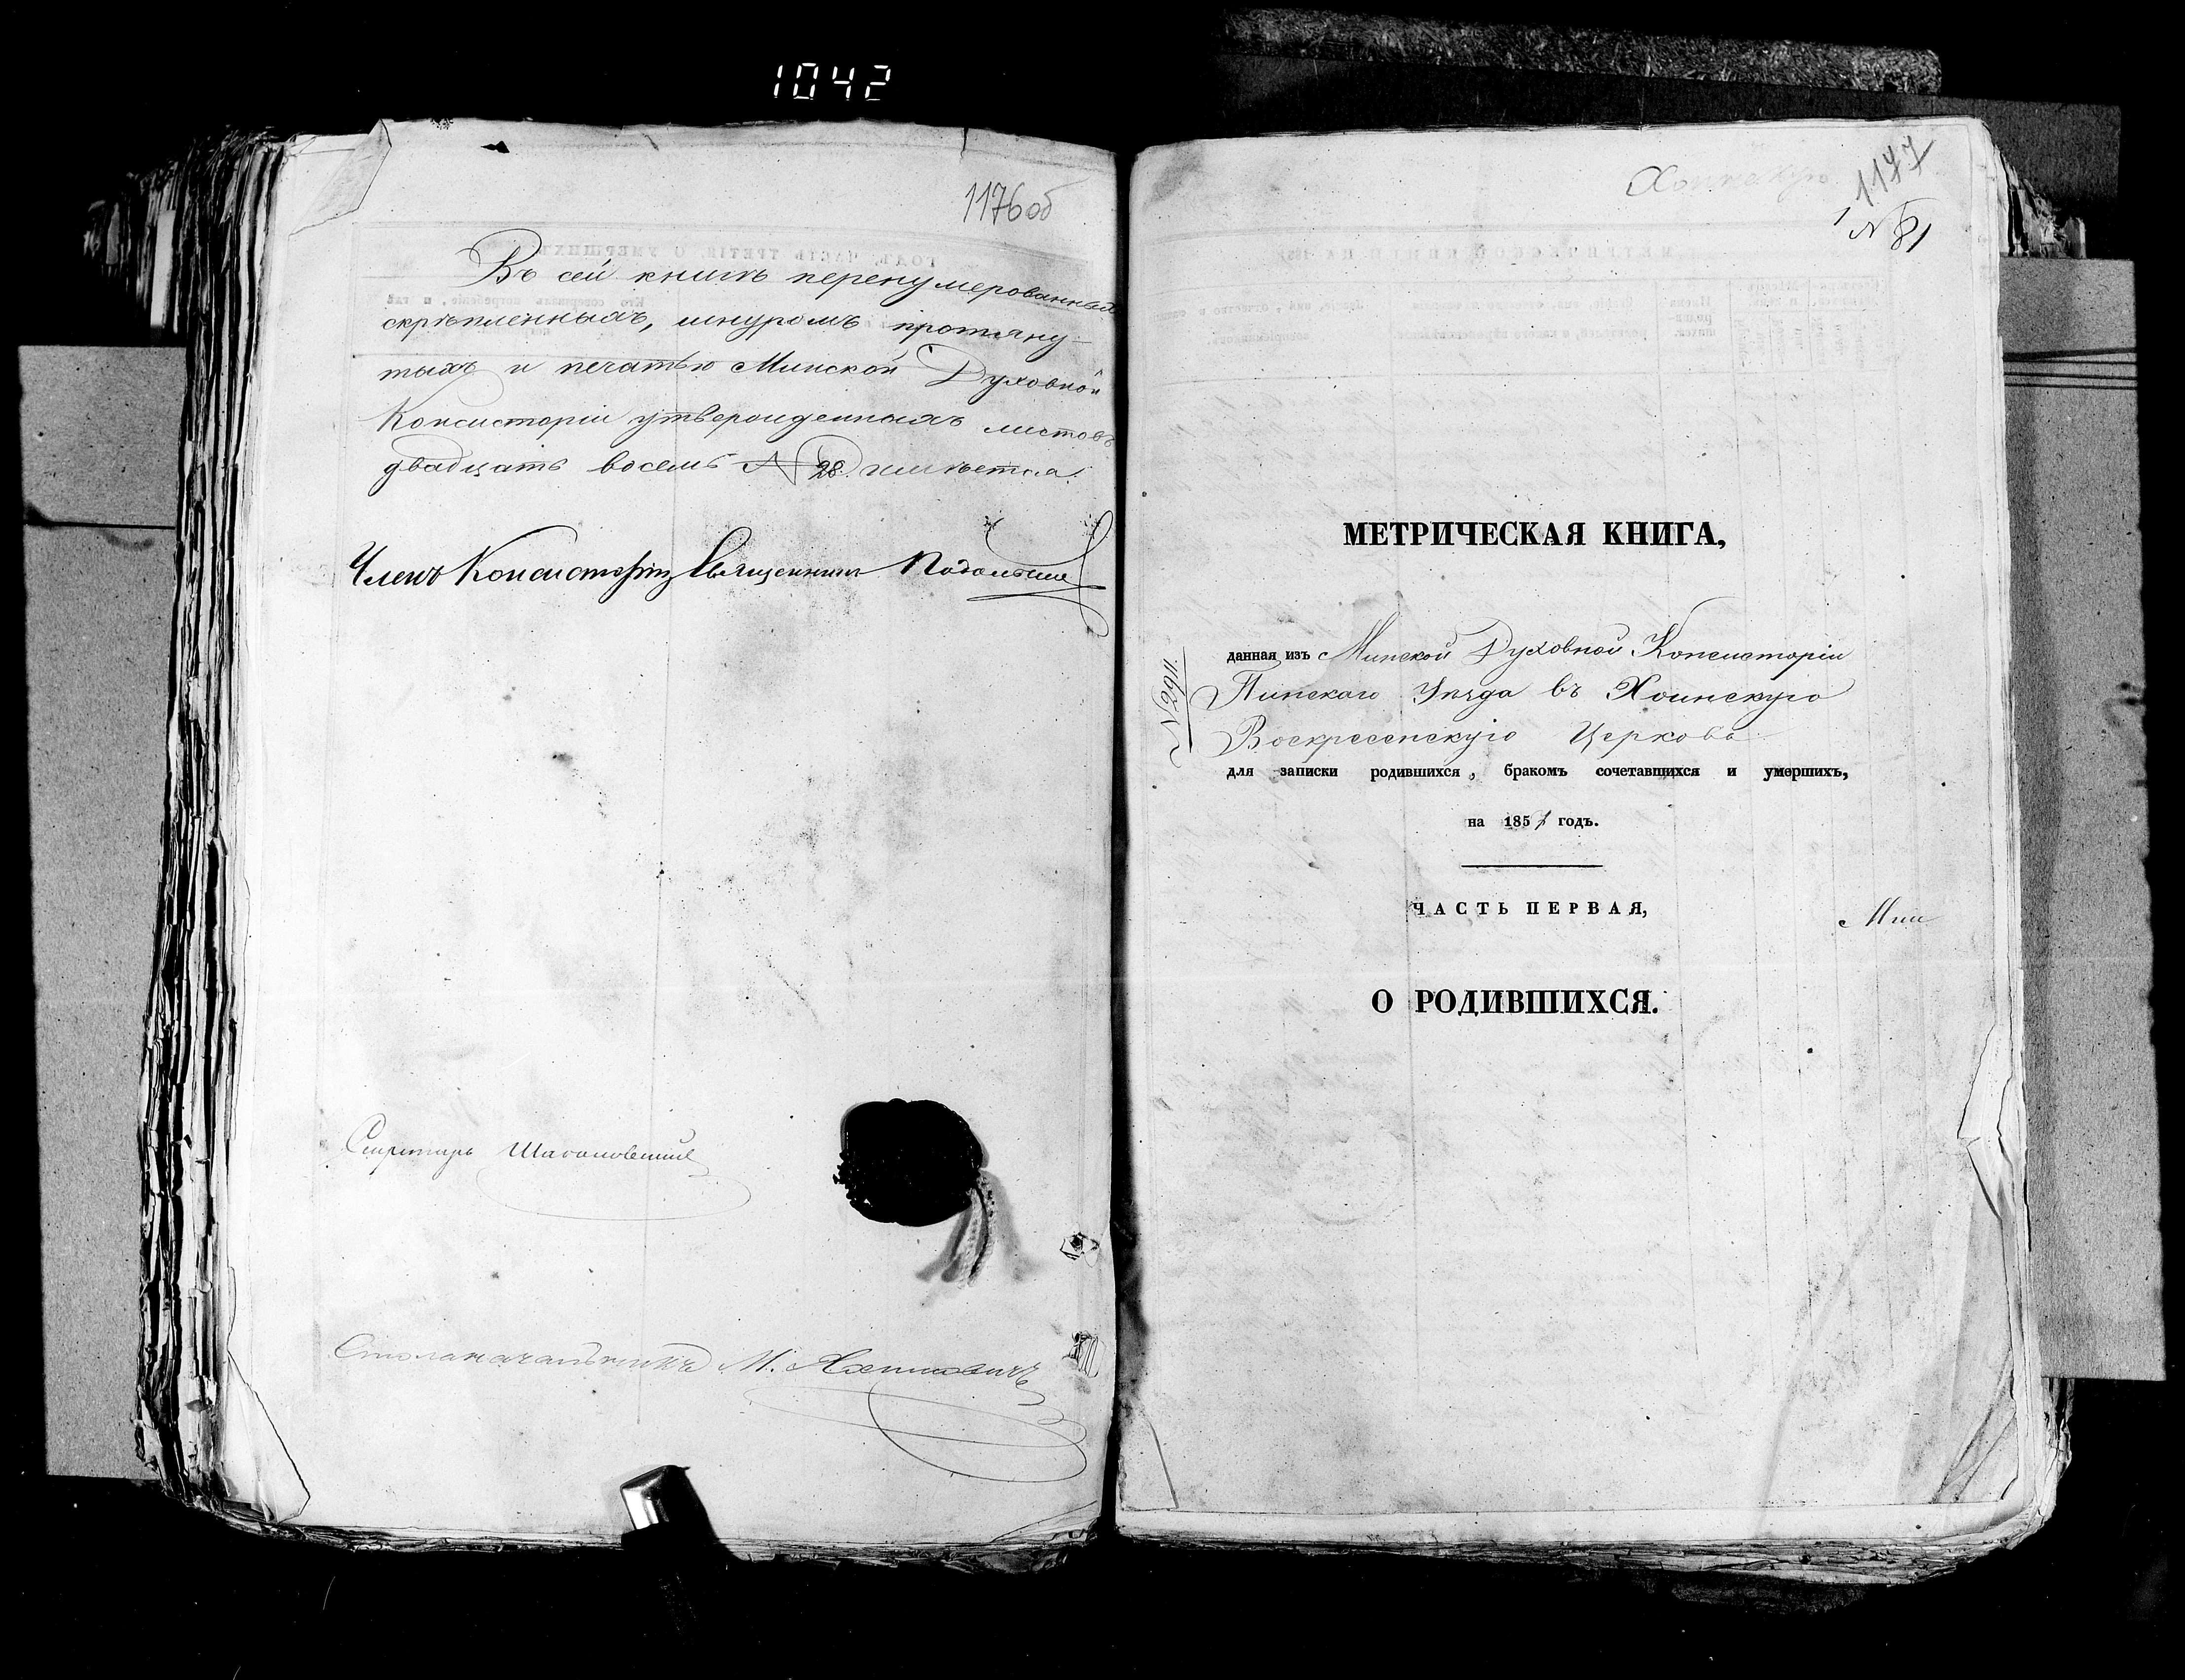 1042
1176об
Въ сей книгѣ перенумерованныхъ
скрѣпленныхъ, шнуромъ протяну-
тыхъ и печатью Минской Духовной
Консисторіи утвержденныхъ листовъ
двадцать восемь № 28. имѣется.
Членъ Консисторіи Священникъ
Секретарь
Столоначальникъ М.
1177
1 № 81
МЕТРИЧЕСКАЯ КНИГА,
данная изъ Минской Духовной Консисторіи
Пинскаго Уѣзда въ Хоинскую
Воскресенскую Церковь
№ 2911.
для записки родившихся, бракомъ сочетавшихся и умершихъ,
на 185 годъ.
ЧАСТЬ ПЕРВАЯ,
Мин
О РОДИВШИХСЯ.